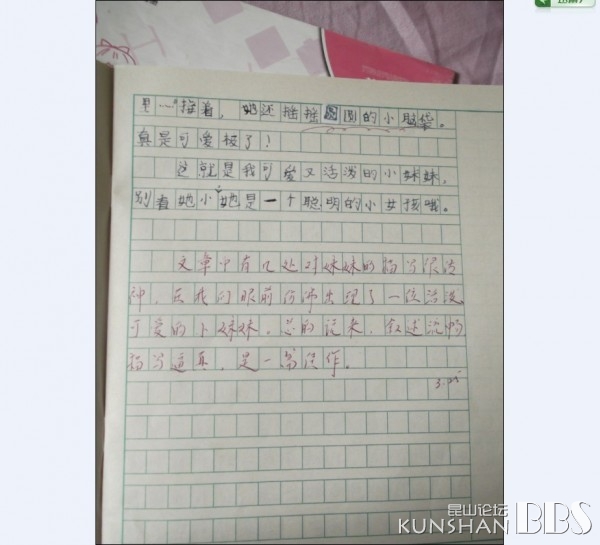 着，她还摇摇圆圆的小脑袋。
真是可爱极了！
这就是我可爱又活泼的小妹妹，
别看她小，她是一个聪明的小女孩哦。
文章中有几处对妹妹的描写很传
神，在我们眼前仿佛出现了一位活泼
可爱的小妹妹。总的说来，叙述流畅
描写逼真，是一篇佳作。
3.25
昆山论坛
KUNSHAN BBS